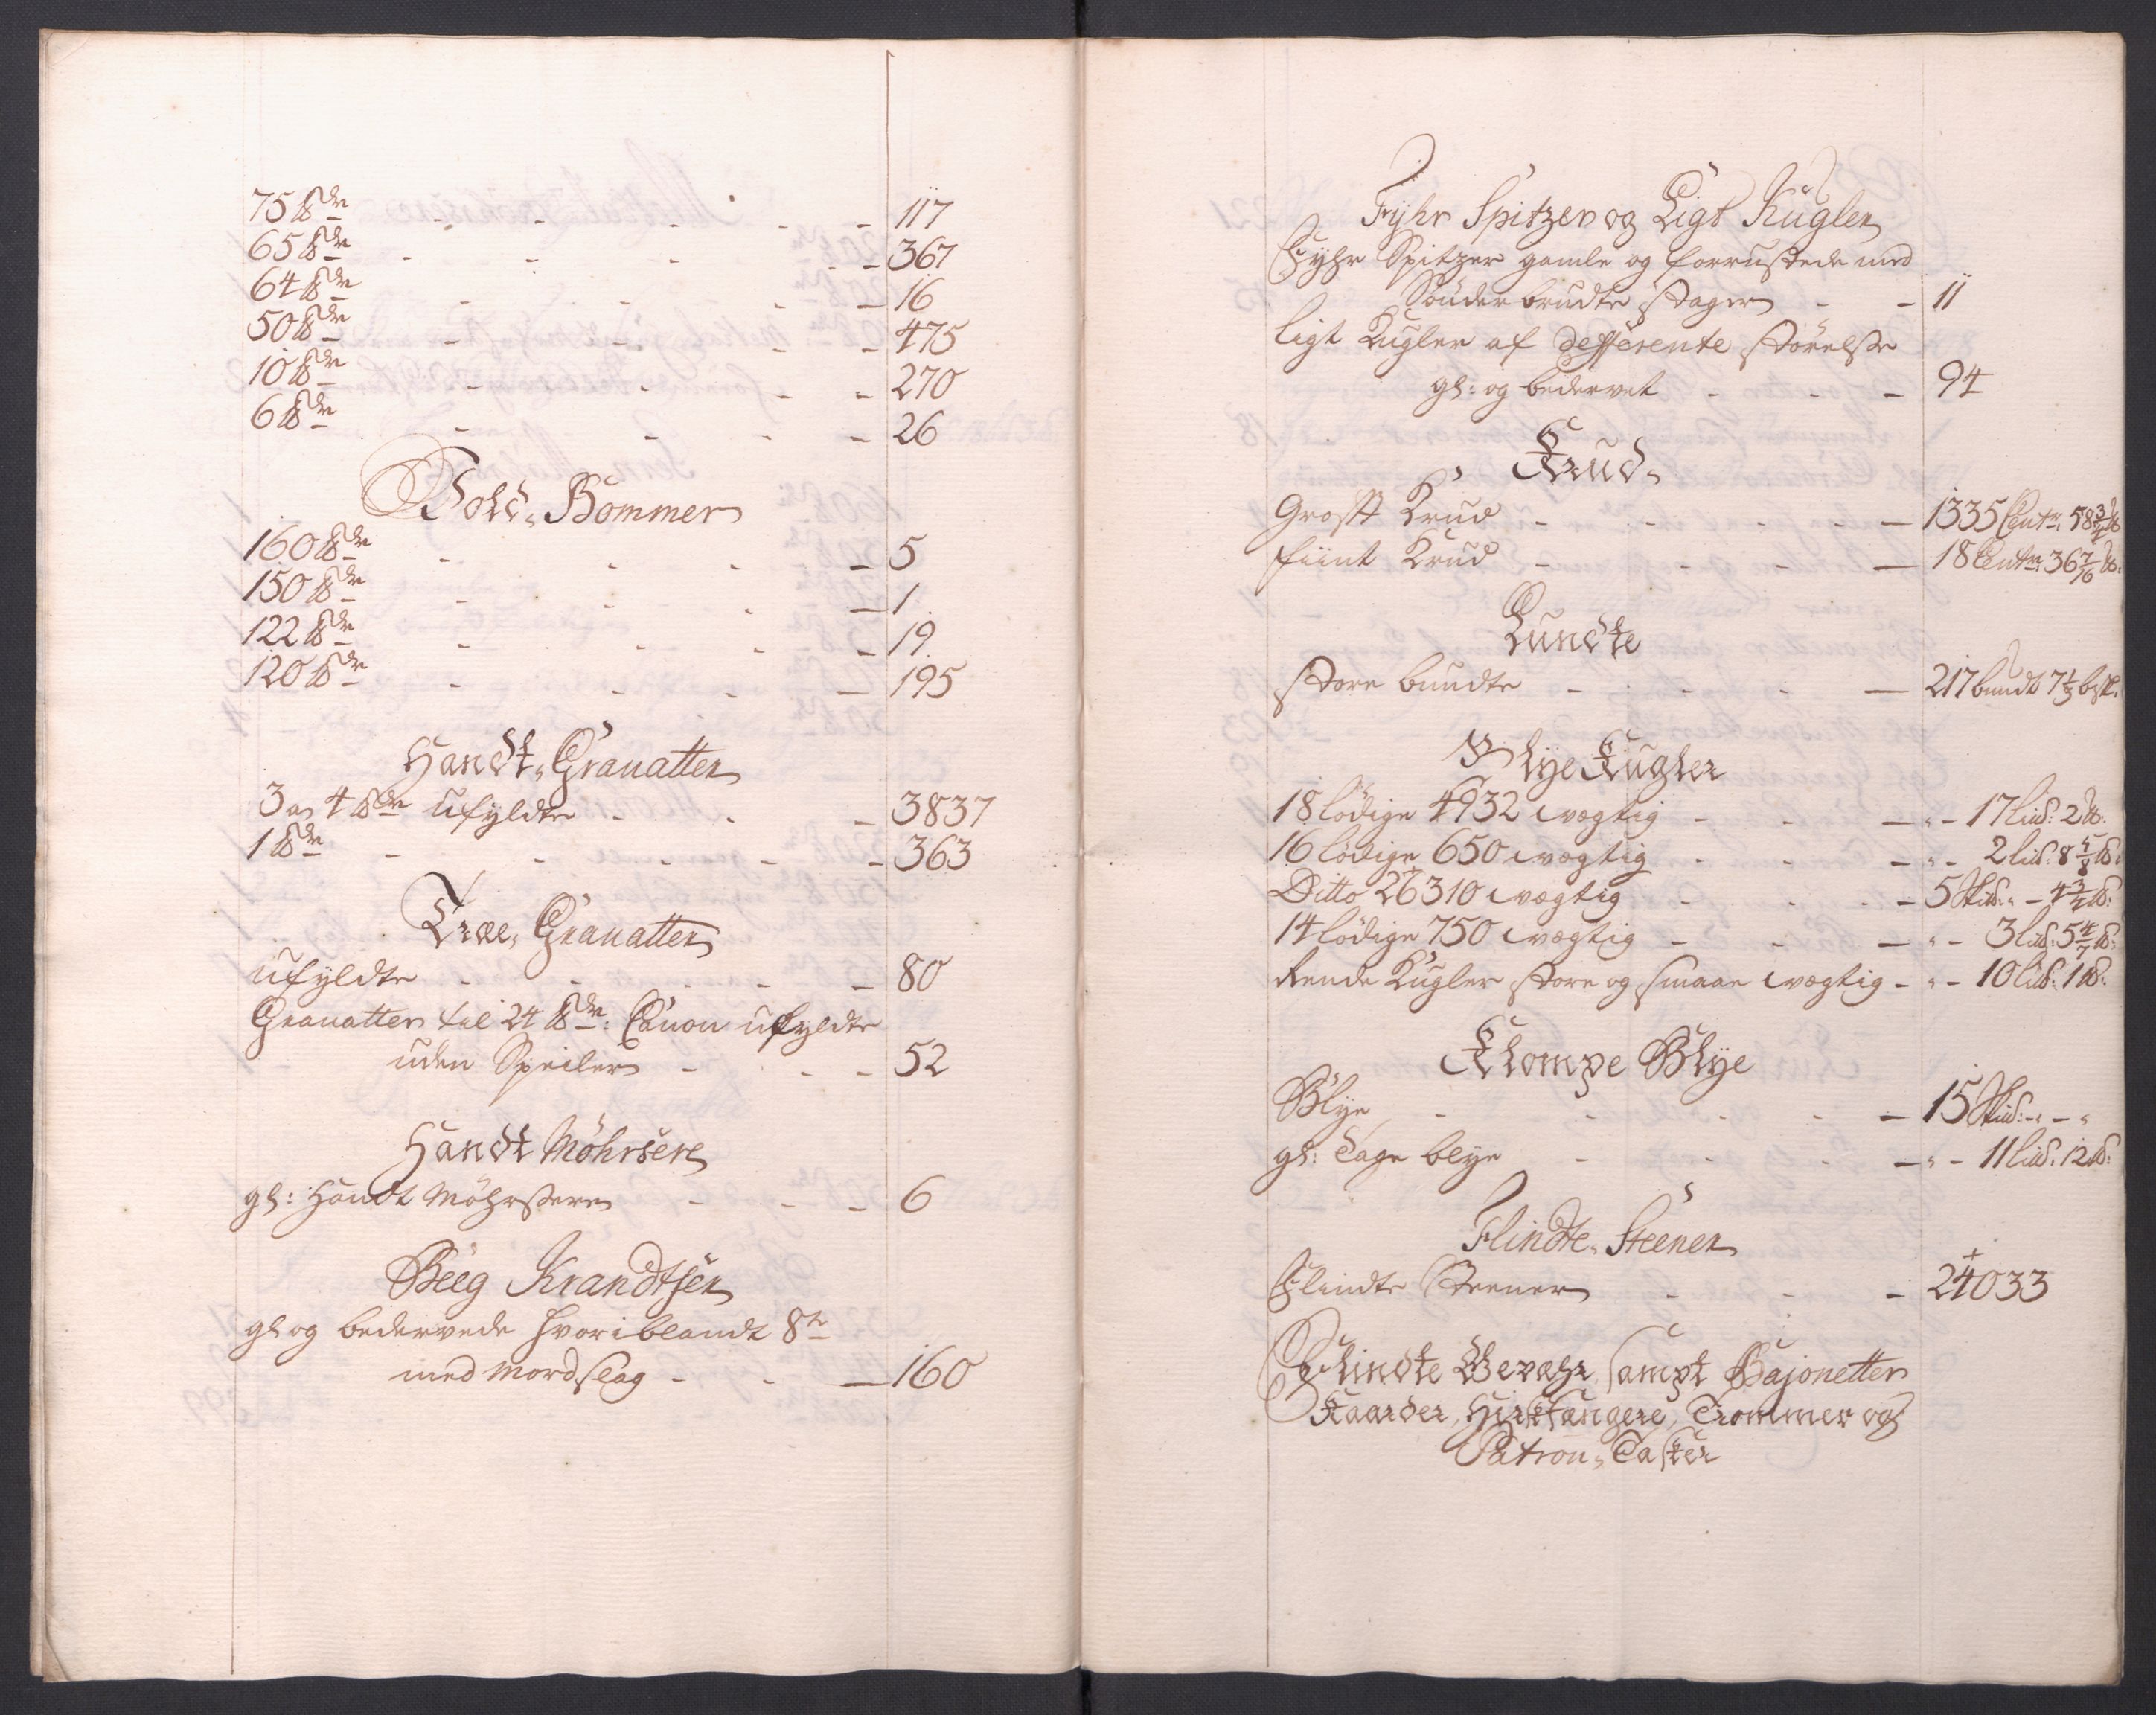 75 ℔dr - - - - - 117
65 ℔dr - - - - - 367
64 ℔dr - - - - 16
50 ℔dr - - - - 475
10 ℔dr - - - - 270
6 ℔dr - - - - 26
Bommer
160 ℔dr - - - - 5
150 ℔dr - - - - 1
122 ℔dr - - - - 19
120 ℔dr - - - - 195
Handt Granatter
3 a 4 ℔dr ufyldte - - - 3837
1 ℔dr - - - - - 363
Træe Granatter
ufyldte - - - - - 80
Granatter til 24 ℔dr: Canon ufyldte
uden Speiler - - - 52
Handt Möhrsere
gl: Handt Möhrsere - - - 6
Beeg Krandtser
gl og bedervede hvoriblandt 8te
med Mordslag - - - 160
Fyhr Spitzer og Ligt Kugler
Fyhr Spitzer gamle og forrustede med
Sönderbrudte Stager - - 11
Ligt Kugler af defferente Störelse
gl: og bedervet - - - 94
Krud
Groft Krud - - - - - 1335 Centr: 58 3/4 ℔
fiint Krud - - - - 18 Centr: 36 7/16 ℔:
Lundte
Store bundte - - - - 217 bundt 7 1/2
Blye Kugler
18 lödige 4932 vægtig - - - " - 17 Lisd: 2 ℔:
16 lödige 650 vægtig - - - " - 2 Lisd: 8 5/8 ℔:
Ditto 26310 vægtig - - - 5 Skisd: " - 4 3/4 ℔:
14 lödige 750 vægtig - - - " - 3 Lisd: 5 4/7 ℔:
Rende Kugler store og smaae vægtig - " - 10 Lisd: 1 ℔:
Klompe Blye
Blye - - - - - 15 Skisd: - " - "
gl: Tage blye - - - - " - 11 Lisd: 12 ℔:
Flindte Steener
Flindte Steener - - - 24033
Flindte Gevæhr sampt Bajonetter
Kaarder, Hirsfængere, Trommer og
Patron Tasker